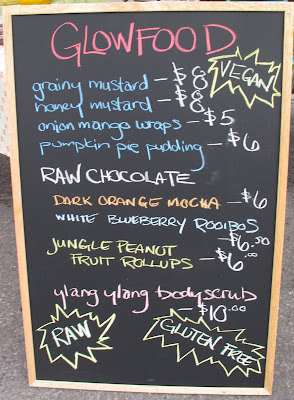 GLOWFOOD
VEGAN
grainy mustard - $8
honey mustard - $8
onion mango wraps - $5
pumpkin pie pudding - $6
RAW CHOCOLATE
DARK ORANGE MOCHA - $6
WHITE BLUEBERRY ROOIBOS
- $6.50
JUNGLE PEANUT
FRUIT ROLLUPS - $6.00
ylang ylang body scrub
- $10.00
RAW
GLUTEN FREE